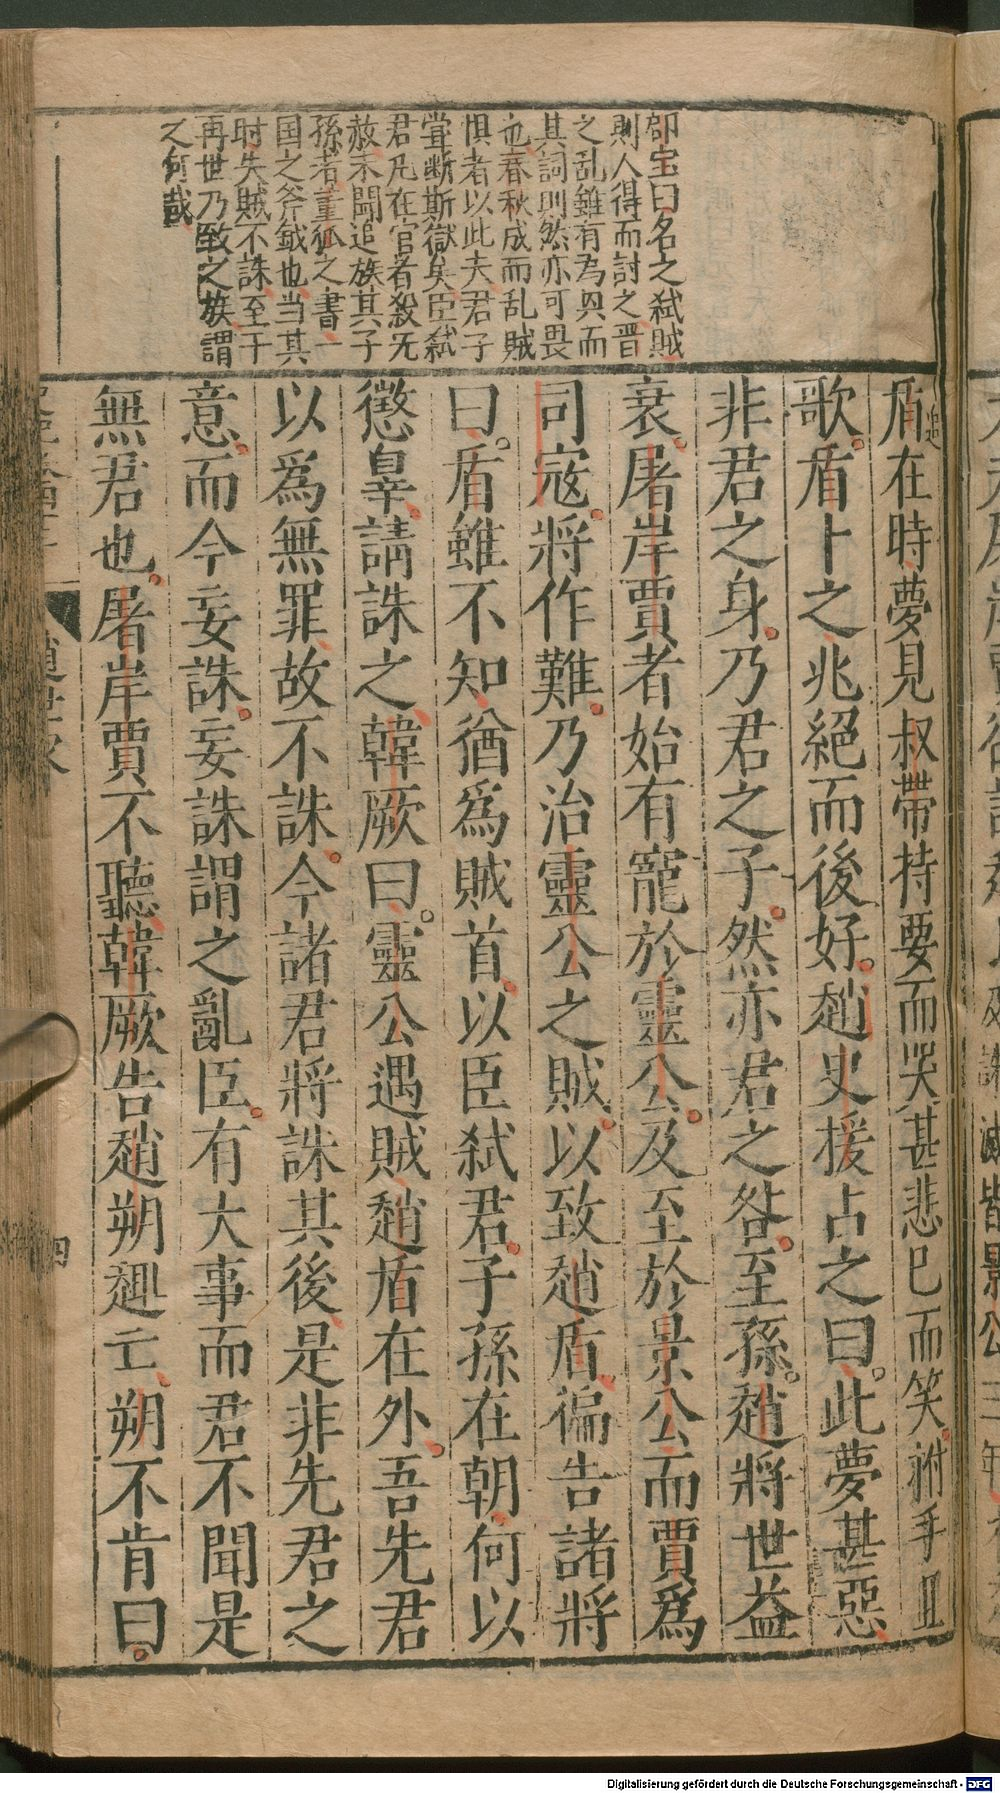 邵宝曰名之弑賊
則人得而討之晋
之乱雖有為𠔃而
其詞則然亦可畏
也春秋成而乱賊
惧者以此夫君子
甞断斯獄矣臣弑
君凢在官者殺旡
赦未聞追族其子
孫者董狐之書一
国之斧鉞也当其
时失賊不誅至于
再世乃致之族謂
之何哉
盾在時夢見叔帶持要而哭甚悲已而笑拊手且
追
歌盾卜之兆絕而後好趙史援占之曰此夢甚惡
非君之身乃君之子然亦君之咎至孫趙將世益
衰屠岸賈者始有寵於靈公及至於景公而賈爲
司寇將作難乃治靈公之賊以致趙盾徧告諸將
曰盾雖不知猶爲賊首以臣弑君子孫在朝何以
懲辠請誅之韓厥曰靈公遇賊趙盾在外吾先君
以爲無罪故不誅今諸君將誅其後是非先君之
意而今妄誅妄誅謂之亂臣有大事而君不聞是
無君也屠岸賈不聽韓厥告趙朔趣亡朔不肯曰
趙世家
四
Digitalisierung gefördert durch die Deutsche Forschungsgemeinschaft - DFG